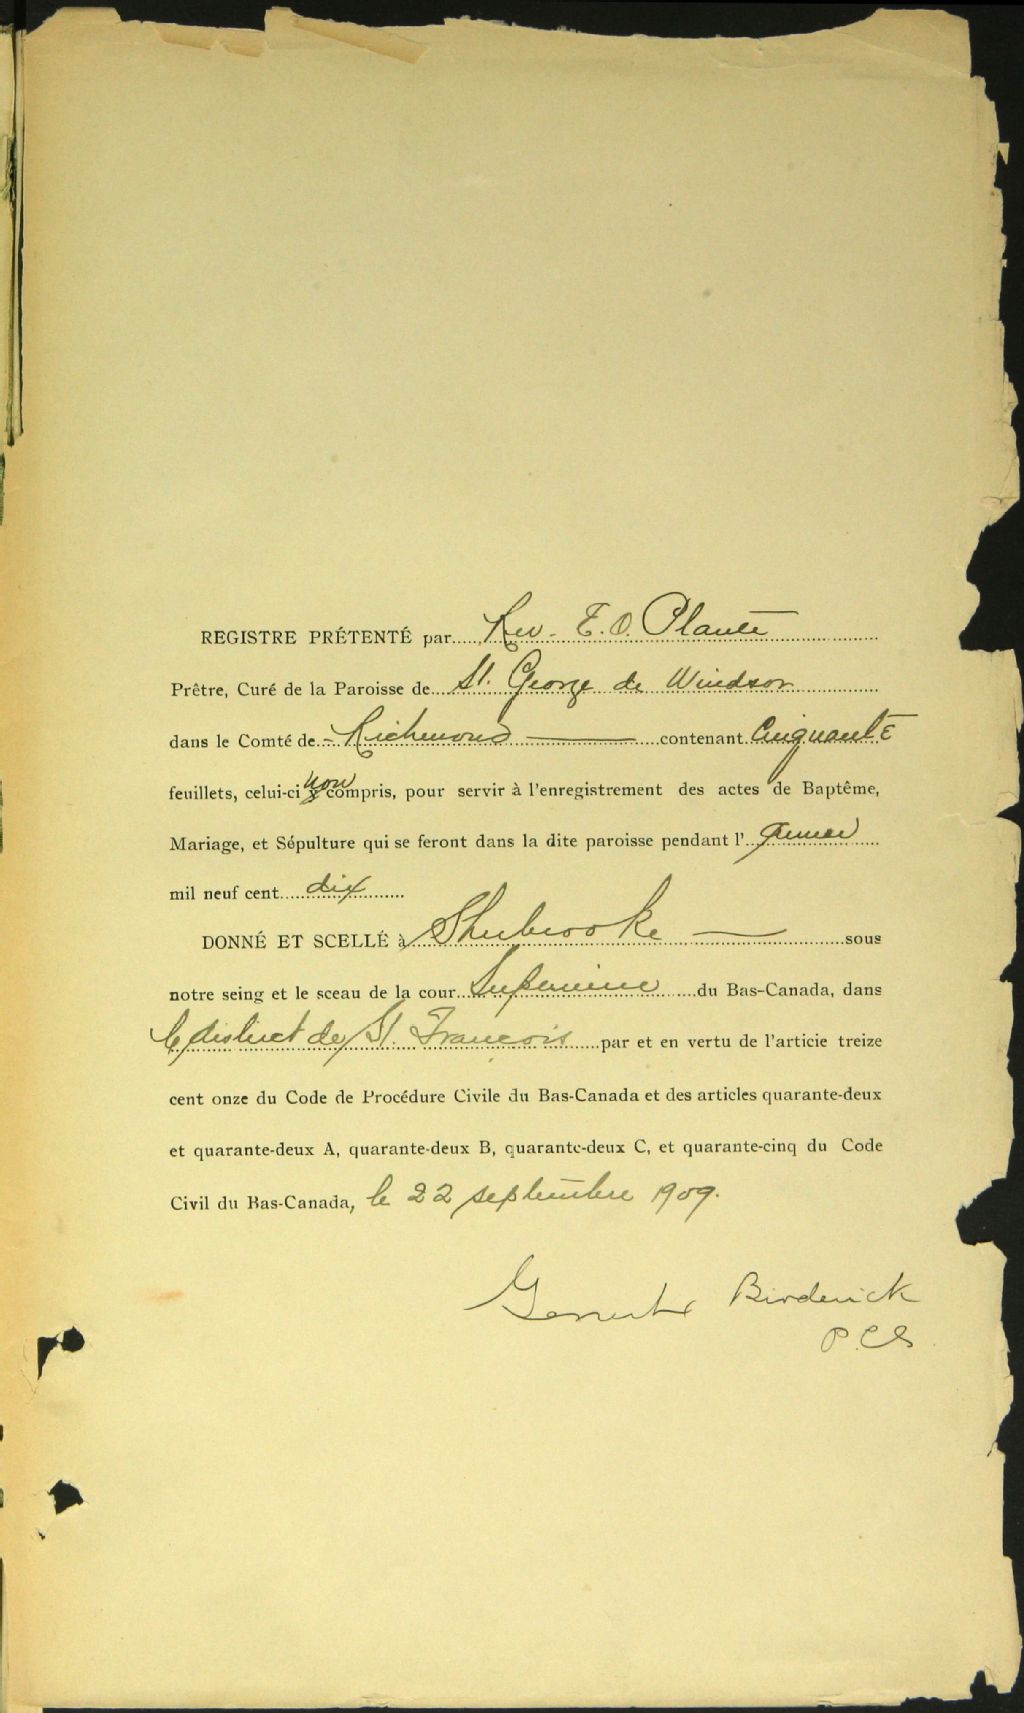 REGISTRE PRÉTENTÉ par Rev. E. O. Plante
Prêtre, Curé de la Paroisse de St. George de Windsor
dans le Comté de Richmond contenant Cinquante
feuillets, celui-ci non compris, pour servir à l'enregistrement des actes de Baptême,
Mariage, et Sépulture qui se feront dans la dite paroisse pendant l'année
mil neuf cent dix
DONNÉ ET SCELLÉ à Sherbrooke sous
notre seing et le sceau de la cour Superieure du Bas-Canada, dans
le district de St. François par et en vertu de l'articie treize
cent onze du Code de Procédure Civile du Bas-Canada et des articles quarante-deux
et quarante-deux A, quarante-deux B, quarante-deux C, et quarante-cinq du Code
Civil du Bas-Canada, le 22 septembre 1909.
Broderick
P.C.S